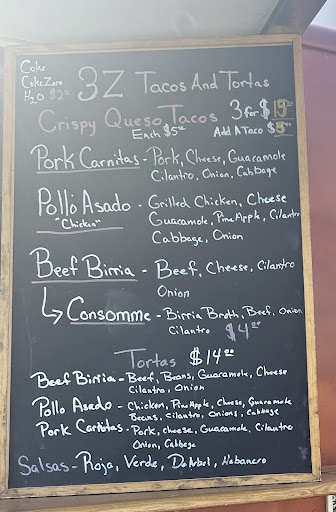 Coke
Coke Zero
H2O $2.00
3Z Tacos And Tortas
Crispy Queso Tacos 3 for $15.00
Each $5.00 Add A Taco $5.00
Pork Carnitas - Pork, Cheese, Guacamole
Cilantro, Onion, Cabbage
Pollo Asado - Grilled Chicken, Cheese
"Chicken" Guacamole, Pine Apple, Cilantro
Cabbage, Onion
Beef Birria - Beef, Cheese, Cilantro
Onion
↳ Consomme - Birria Broth, Beef, Onion
Cilantro $4.00
Tortas $14.00
Beef Birria - Beef, Beans, Guacamole, Cheese
Cilantro, Onion
Pollo Asado - Chicken, Pine Apple, Cheese, Guacamole
Beans, Cilantro, Onions, Cabbage
Pork Carnitas - Pork, Cheese, Guacamole, Cilantro
Onion, Cabbage
Salsas - Roja, Verde, De Arbol, Habanero